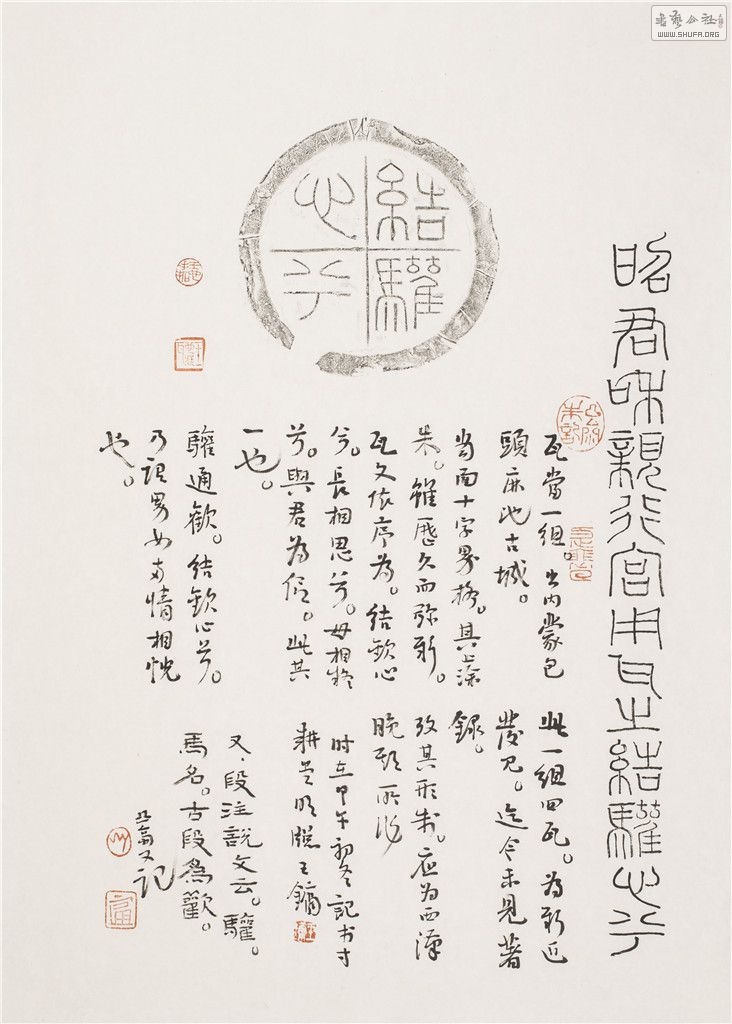 昭君咊親行宮用瓦之結驩心兮
結驩
心兮
瓦當一組。出内蒙包
頭麻池古城。
當面十字界格。其上藻
朱。雖歷久而弥新。
瓦文依序為。结歡心
兮。長相思兮。毋相终
兮。與君為侣。此其
一也。
驩通歡。结歡心兮。
乃謂男女两情相悦
也。
此一组四瓦。为新近
發見。迄今未見著
録。
攷其形制。应为西漢
晚期所作
时在甲午初冬記书寸
耕堂明牕王镛
又、段注說文云。驩。
馬名。古段為歡。
又記
書藝公社
WWW.SHUFA.ORG